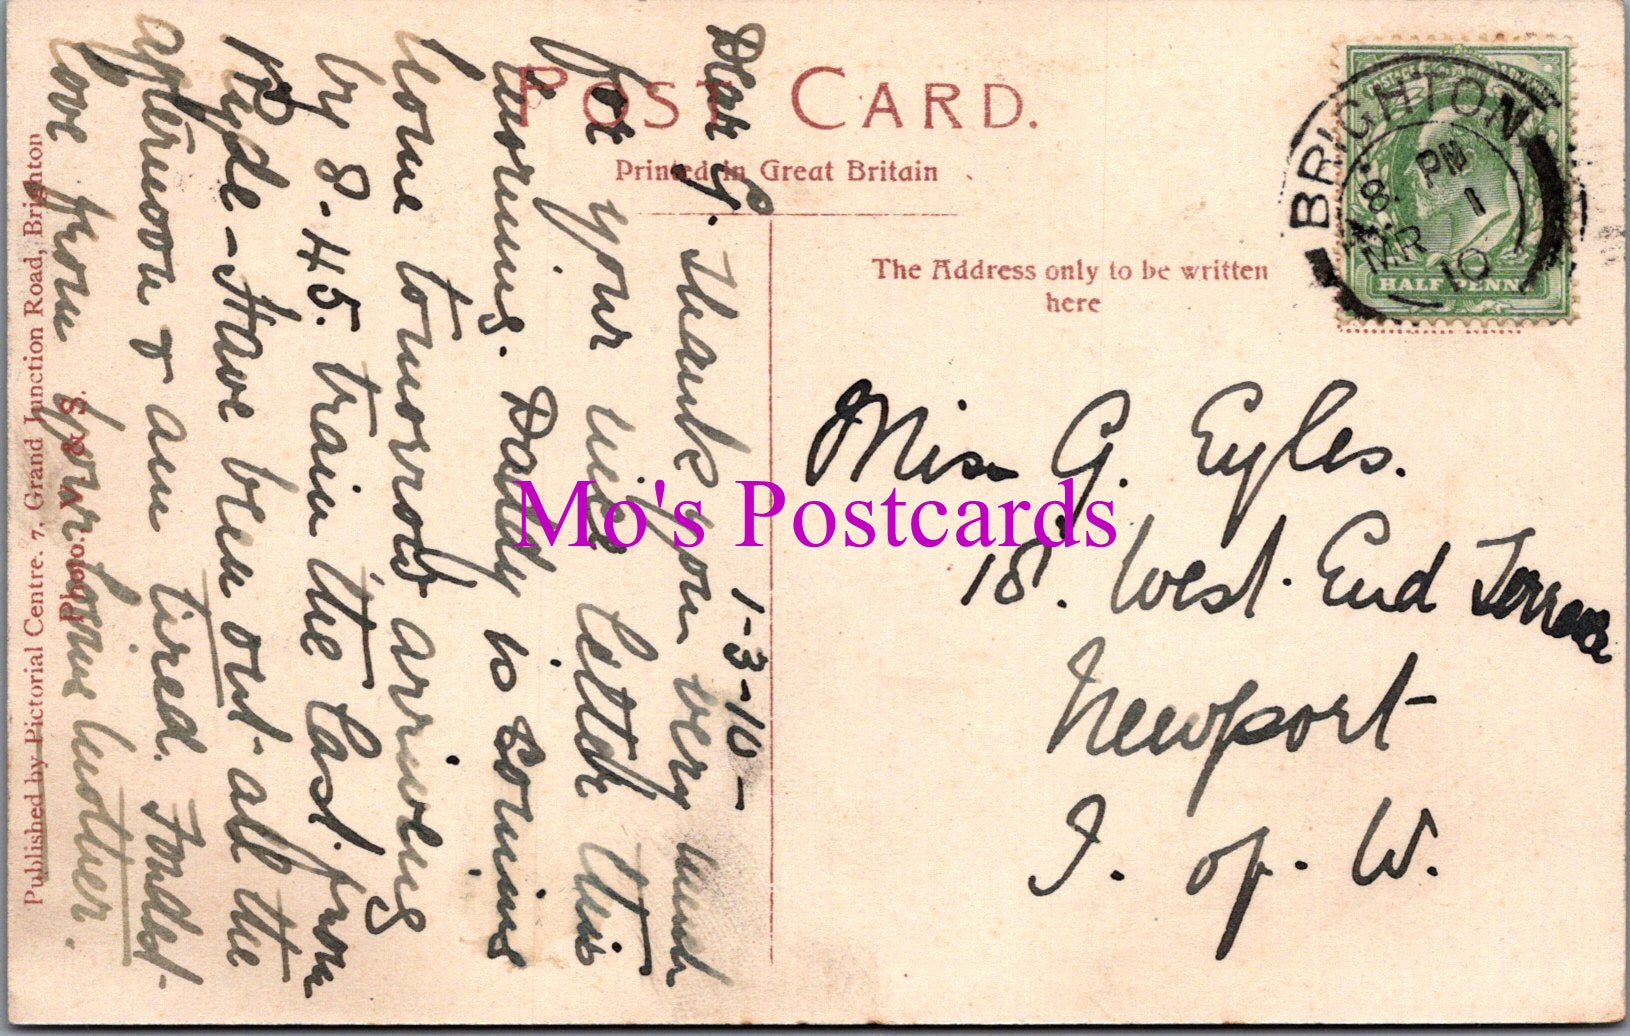 POST CARD.
Printed in Great Britain
The Address only to be written
here
BRIGHTON
8. PM
1
MR
10
HALF PENNY
1-3-10-
Dear G. Thank you very much
for your nice letter this
morning. Daddy is coming
home tomorrow arriving
by 8-45. train the last. from
Ryde - Have been out all the
afternoon & am tired. Fondest
love from your loving mother.
Miss G. Eyles.
18. West. End Terrace
Newport
I. of. W.
Published by Pictorial Centre. 7, Grand Junction Road, Brighton
Photo. W. & S.
Mo's Postcards